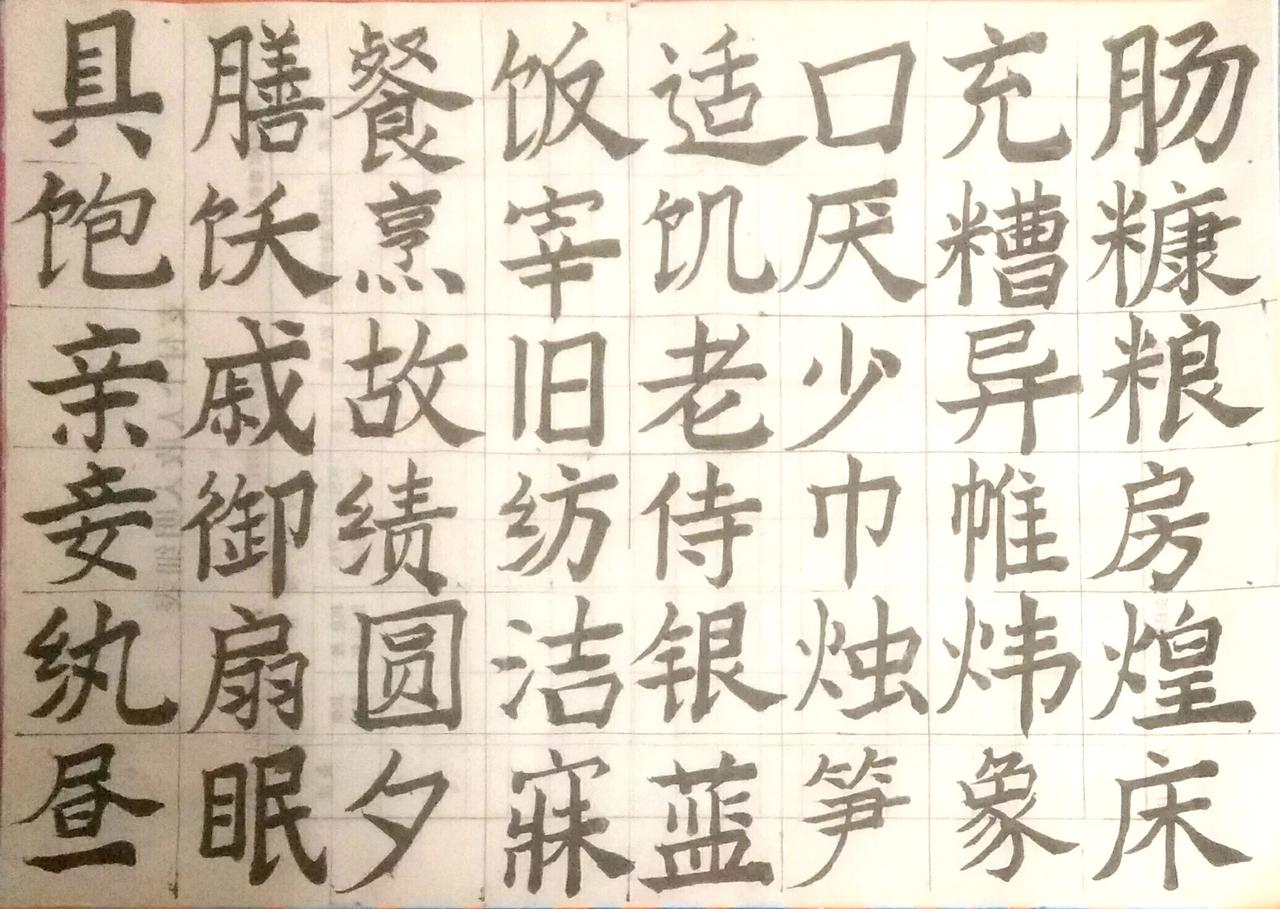 具膳餐饭适口充肠
饱饫烹宰饥厌糟糠
亲戚故旧老少异粮
妾御绩纺侍巾帷房
纨扇圆洁银烛炜煌
昼眠夕寐蓝笋象床